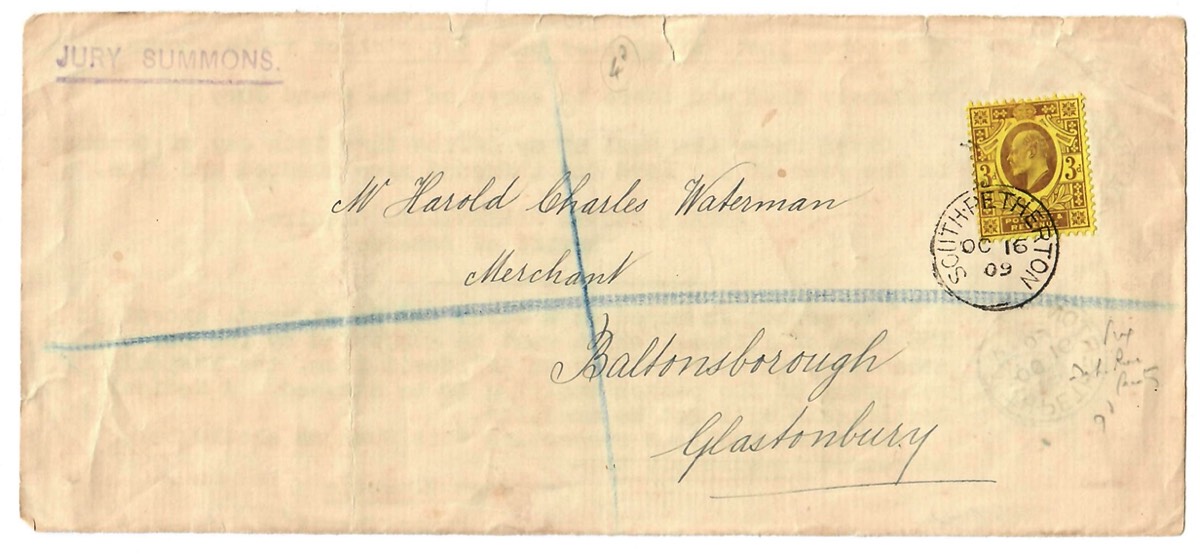 JURY SUMMONS.
4d
Mr Harold Charles Waterman
Merchant
Baltonsborough
Glastonbury
3d 3d
POSTAGE & REVENUE
SOUTH-PETHERTON
OC 16
09